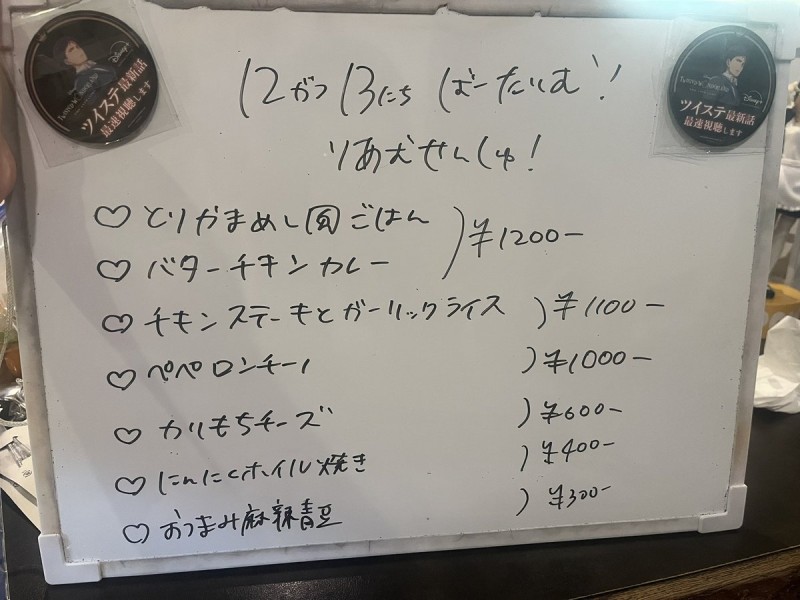 ツイステ最新話
最速視聴します
Disney+
ツイステ最新話
最速視聴します
Disney+
12がつ13にち ばーたいむ!
りあたせんしゅ!
♡とりかまめし風ごはん
♡バターチキンカレー )¥1200-
♡チキンステーキとガーリックライス )¥1100-
♡ペペロンチーノ )¥1000-
♡かりもちチーズ )¥600-
♡にんにくホイル焼き )¥400-
♡おつまみ麻辣青豆 )¥300-